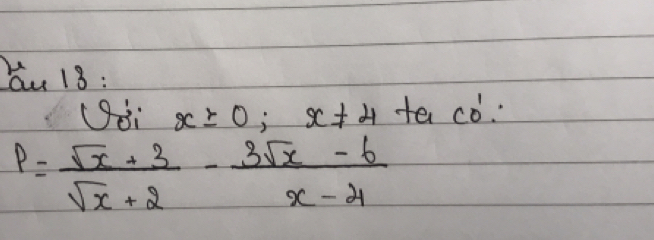 Câu 13:
Với x ≥ 0; x ≠ 4 ta có:
P = (√x + 3)/(√x + 2) - (3√x - 6)/(x - 4)